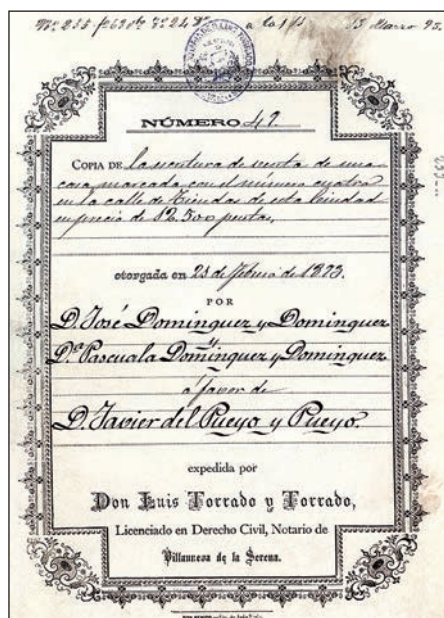 NÚMERO 47.
COPIA DE la escritura de venta de una
casa marcada con el número cuatro
en la calle de Tiendas de esta Ciudad
en precio de 12.500 pesetas.
otorgada en 23 de Febrero de 1893.
POR
D. José Dominguez y Dominguez
y
Dª Pascuala Dominguez y Dominguez
á favor de
D. Javier del Pueyo y Pueyo.
expedida por
Don Luis Torrado y Torrado,
Licenciado en Derecho Civil, Notario de
Villanueva de la Serena.